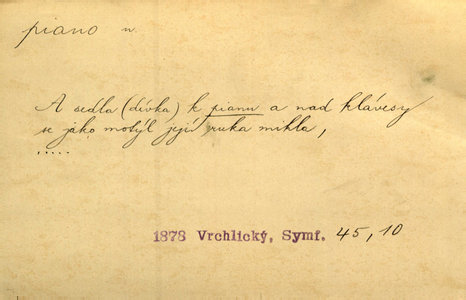 piano n.
A sedla (dívka) k pianu a nad klávesy
se jako motýl její ruka mihla,
.....
1878 Vrchlický, Symf. 45, 10